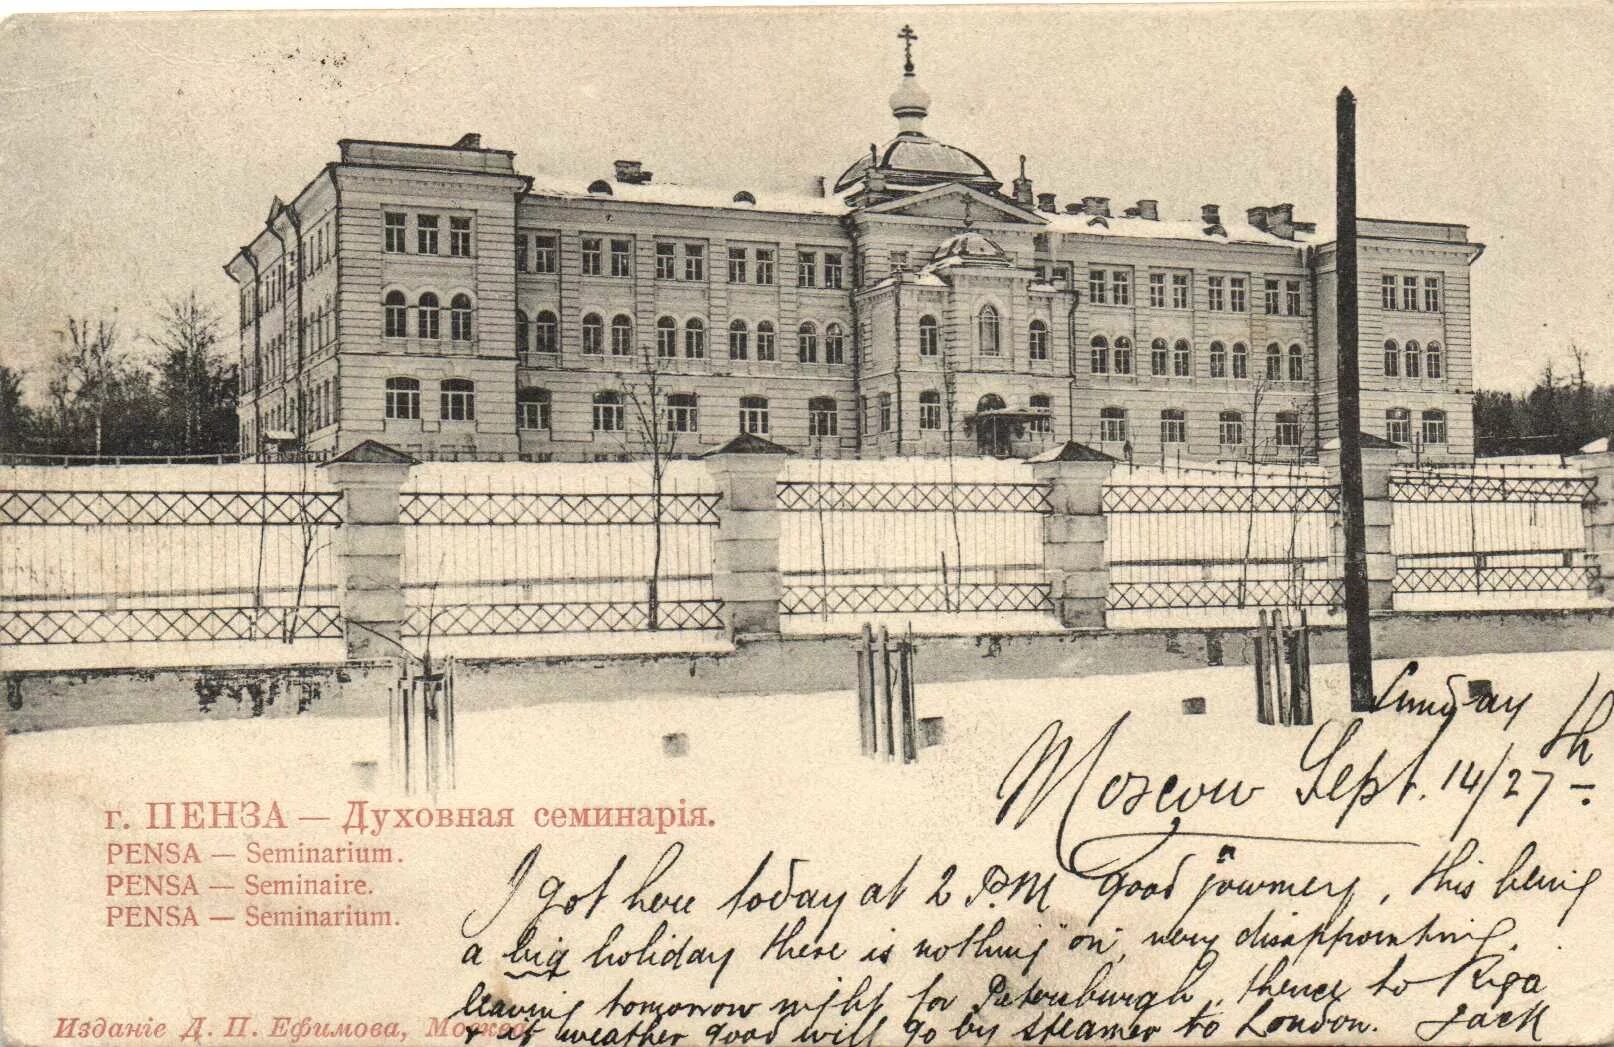 Sunday
Moscow Sept. 14/27th
г. ПЕНЗА — Духовная семинарія.
PENSA — Seminarium.
PENSA — Seminaire.
PENSA — Seminarium.
I got here today at 2 P.M good journey, this being
a big holiday there is nothing "on", very disappointing.
leaving tomorrow night for Petersburgh, thence to Riga
& if weather good will go by steamer to London. Jack
Изданіе Д. П. Ефимова, Москва